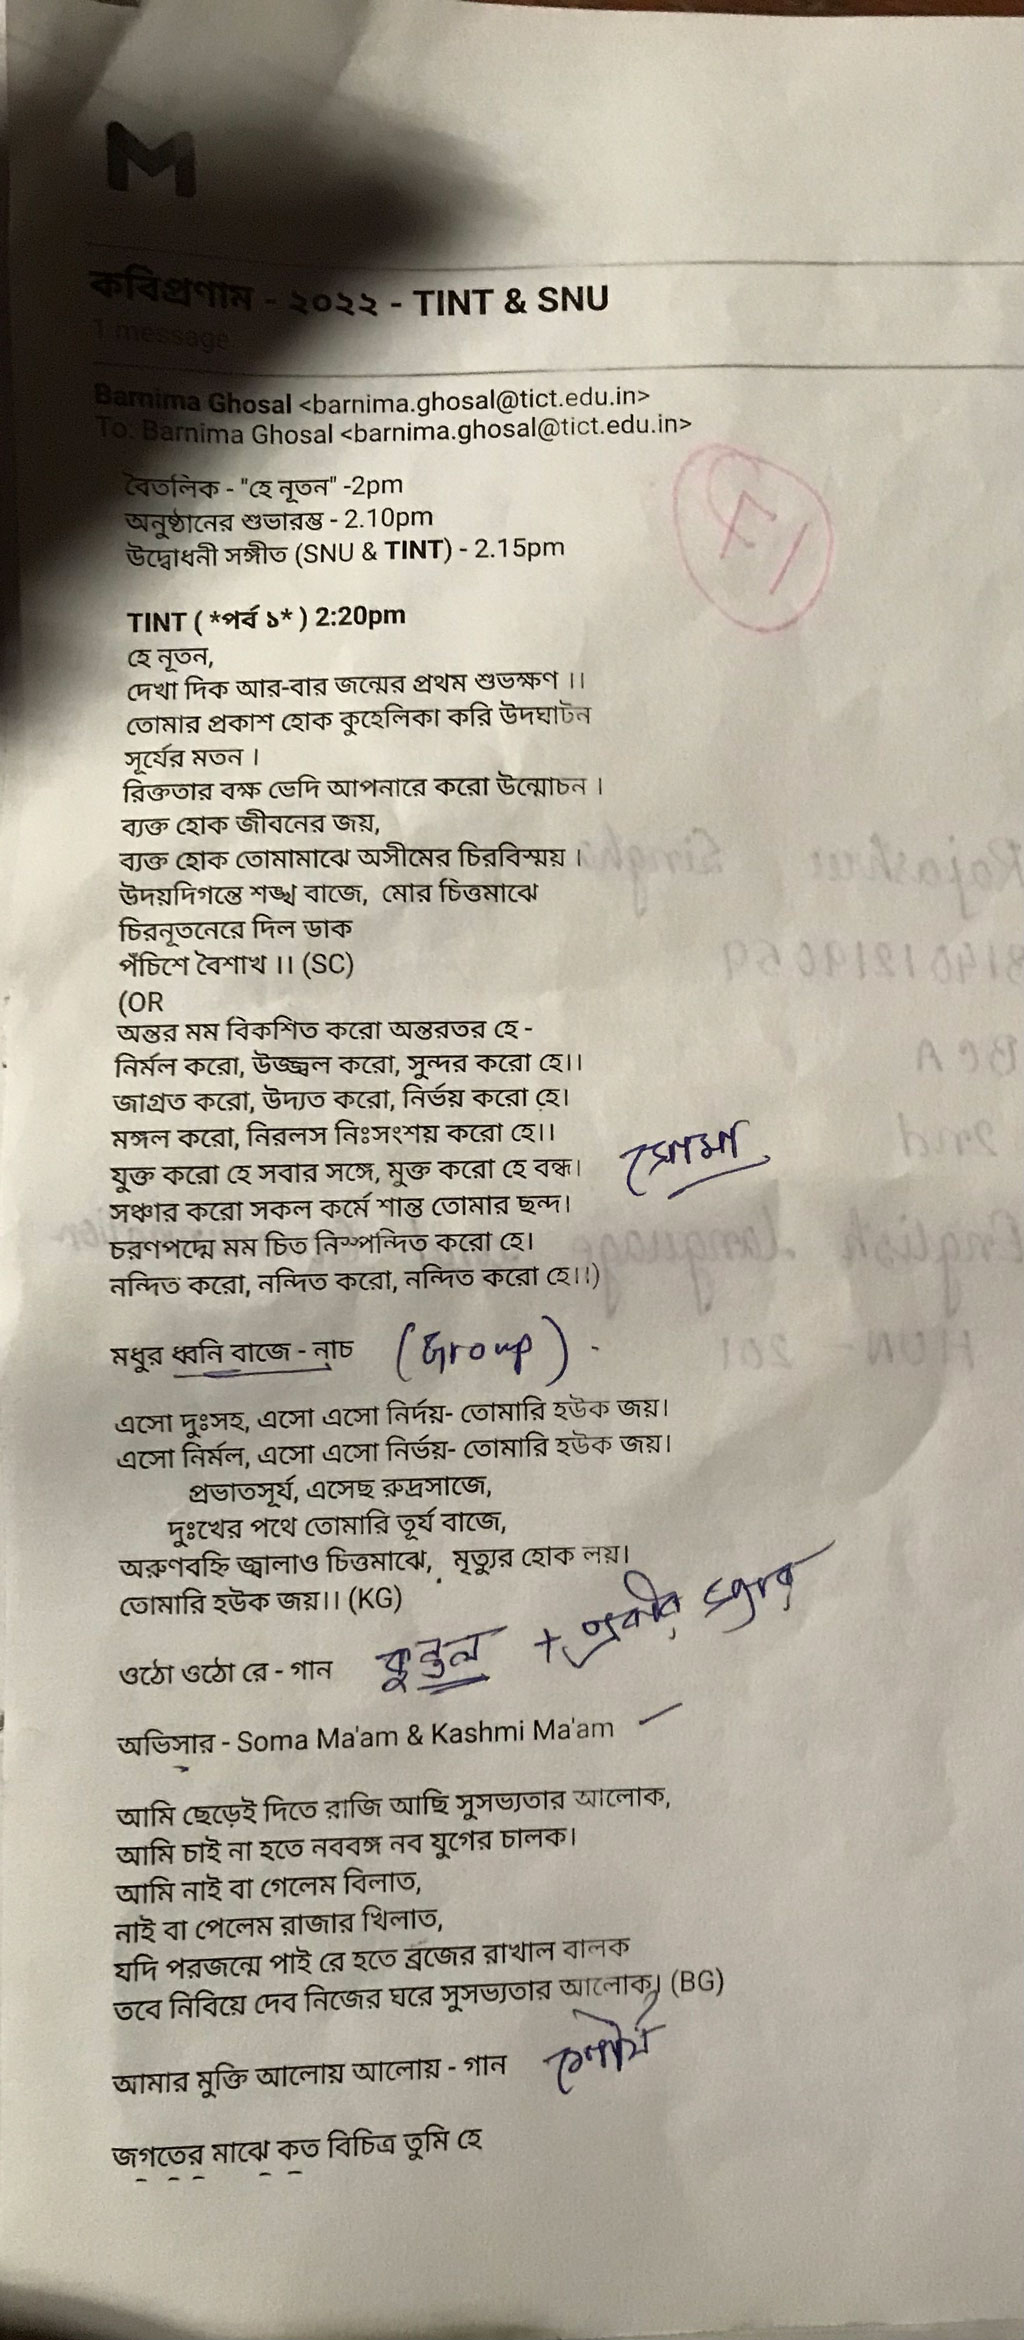 M
কবিপ্রণাম - ২০২২ - TINT & SNU
1 message
Barnima Ghosal <barnima.ghosal@tict.edu.in>
To: Barnima Ghosal <barnima.ghosal@tict.edu.in>
বৈতলিক - "হে নূতন" -2pm
অনুষ্ঠানের শুভারম্ভ - 2.10pm
উদ্বোধনী সঙ্গীত (SNU & TINT) - 2.15pm
TINT ( *পর্ব ১* ) 2:20pm
হে নূতন,
দেখা দিক আর-বার জন্মের প্রথম শুভক্ষণ ।।
তোমার প্রকাশ হোক কুহেলিকা করি উদঘাটন
সূর্যের মতন ।
রিক্ততার বক্ষ ভেদি আপনারে করো উন্মোচন ।
ব্যক্ত হোক জীবনের জয়,
ব্যক্ত হোক তোমামাঝে অসীমের চিরবিস্ময় ।
উদয়দিগন্তে শঙ্খ বাজে, মোর চিত্তমাঝে
চিরনূতনেরে দিল ডাক
পঁচিশে বৈশাখ ।। (SC)
(OR
অন্তর মম বিকশিত করো অন্তরতর হে -
নির্মল করো, উজ্জ্বল করো, সুন্দর করো হে।।
জাগ্রত করো, উদ্যত করো, নির্ভয় করো হে।
মঙ্গল করো, নিরলস নিঃসংশয় করো হে।।
যুক্ত করো হে সবার সঙ্গে, মুক্ত করো হে বন্ধ। সোমা
সঞ্চার করো সকল কর্মে শান্ত তোমার ছন্দ।
চরণপদ্মে মম চিত নিস্পন্দিত করো হে।
নন্দিত করো, নন্দিত করো, নন্দিত করো হে।।)
মধুর ধ্বনি বাজে - নাচ (Group) -
এসো দুঃসহ, এসো এসো নির্দয়- তোমারি হউক জয়।
এসো নির্মল, এসো এসো নির্ভয়- তোমারি হউক জয়।
প্রভাতসূর্য, এসেছ রুদ্রসাজে,
দুঃখের পথে তোমারি তূর্য বাজে,
অরুণবহ্নি জ্বালাও চিত্তমাঝে, মৃত্যুর হোক লয়।
তোমারি হউক জয়।। (KG)
ওঠো ওঠো রে - গান কুন্তল + প্রবীর
অভিসার - Soma Ma'am & Kashmi Ma'am
আমি ছেড়েই দিতে রাজি আছি সুসভ্যতার আলোক,
আমি চাই না হতে নববঙ্গ নব যুগের চালক।
আমি নাই বা গেলেম বিলাত,
নাই বা পেলেম রাজার খিলাত,
যদি পরজন্মে পাই রে হতে ব্রজের রাখাল বালক
তবে নিবিয়ে দেব নিজের ঘরে সুসভ্যতার আলোক। (BG)
আমার মুক্তি আলোয় আলোয় - গান
জগতের মাঝে কত বিচিত্র তুমি হে